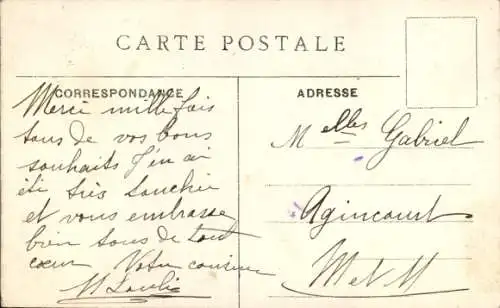 CARTE POSTALE
CORRESPONDANCE
Merci mille fois
tous de vos bons
souhaits J'en ai
été très touchée
et vous embrasse
bien tous de tout
cœur Votre cousine
ADRESSE
Melles Gabriel
Agincourt
M et M